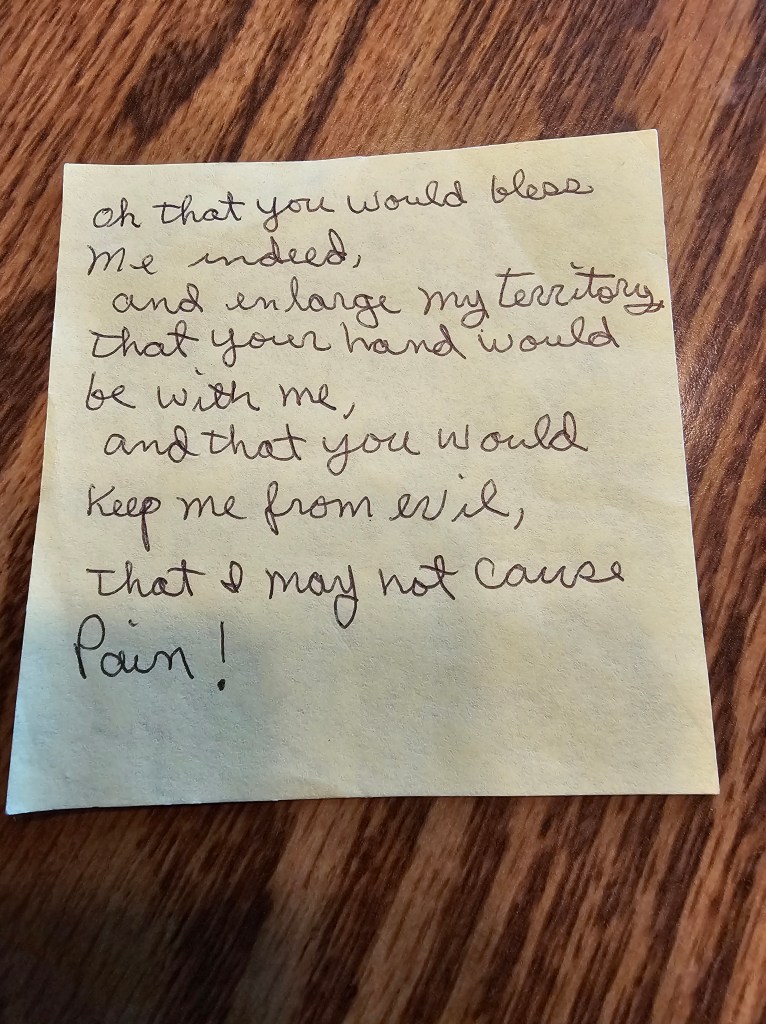 Oh that you would bless
me indeed,
and enlarge my territory,
that your hand would
be with me,
and that you would
keep me from evil,
that I may not cause
Pain!